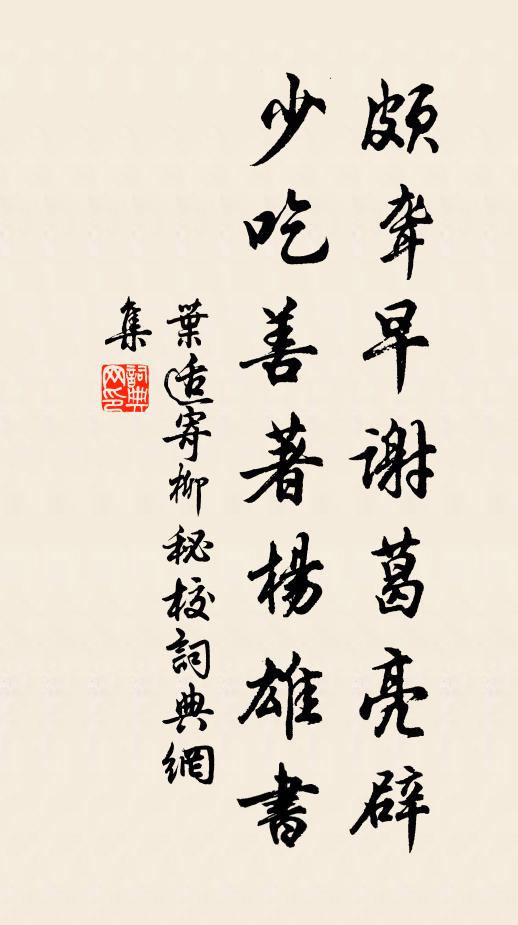 頗聾早謝葛亮辟
少吃善著楊雄書
葉適寄柳秘校詞典網
集
詞典網印